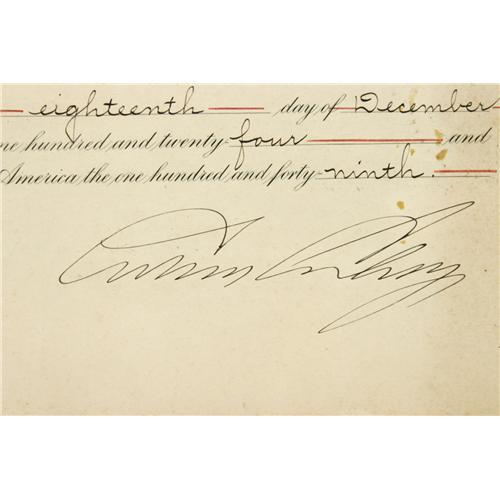 eighteenth day of December
ne hundred and twenty-four and
America the one hundred and forty-ninth.